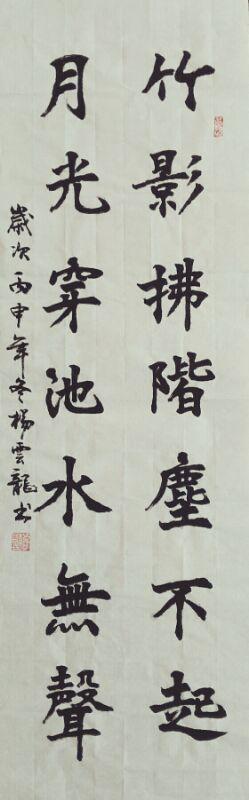 竹影拂階塵不起
月光穿池水無聲
歲次丙申年冬楊雲龍书